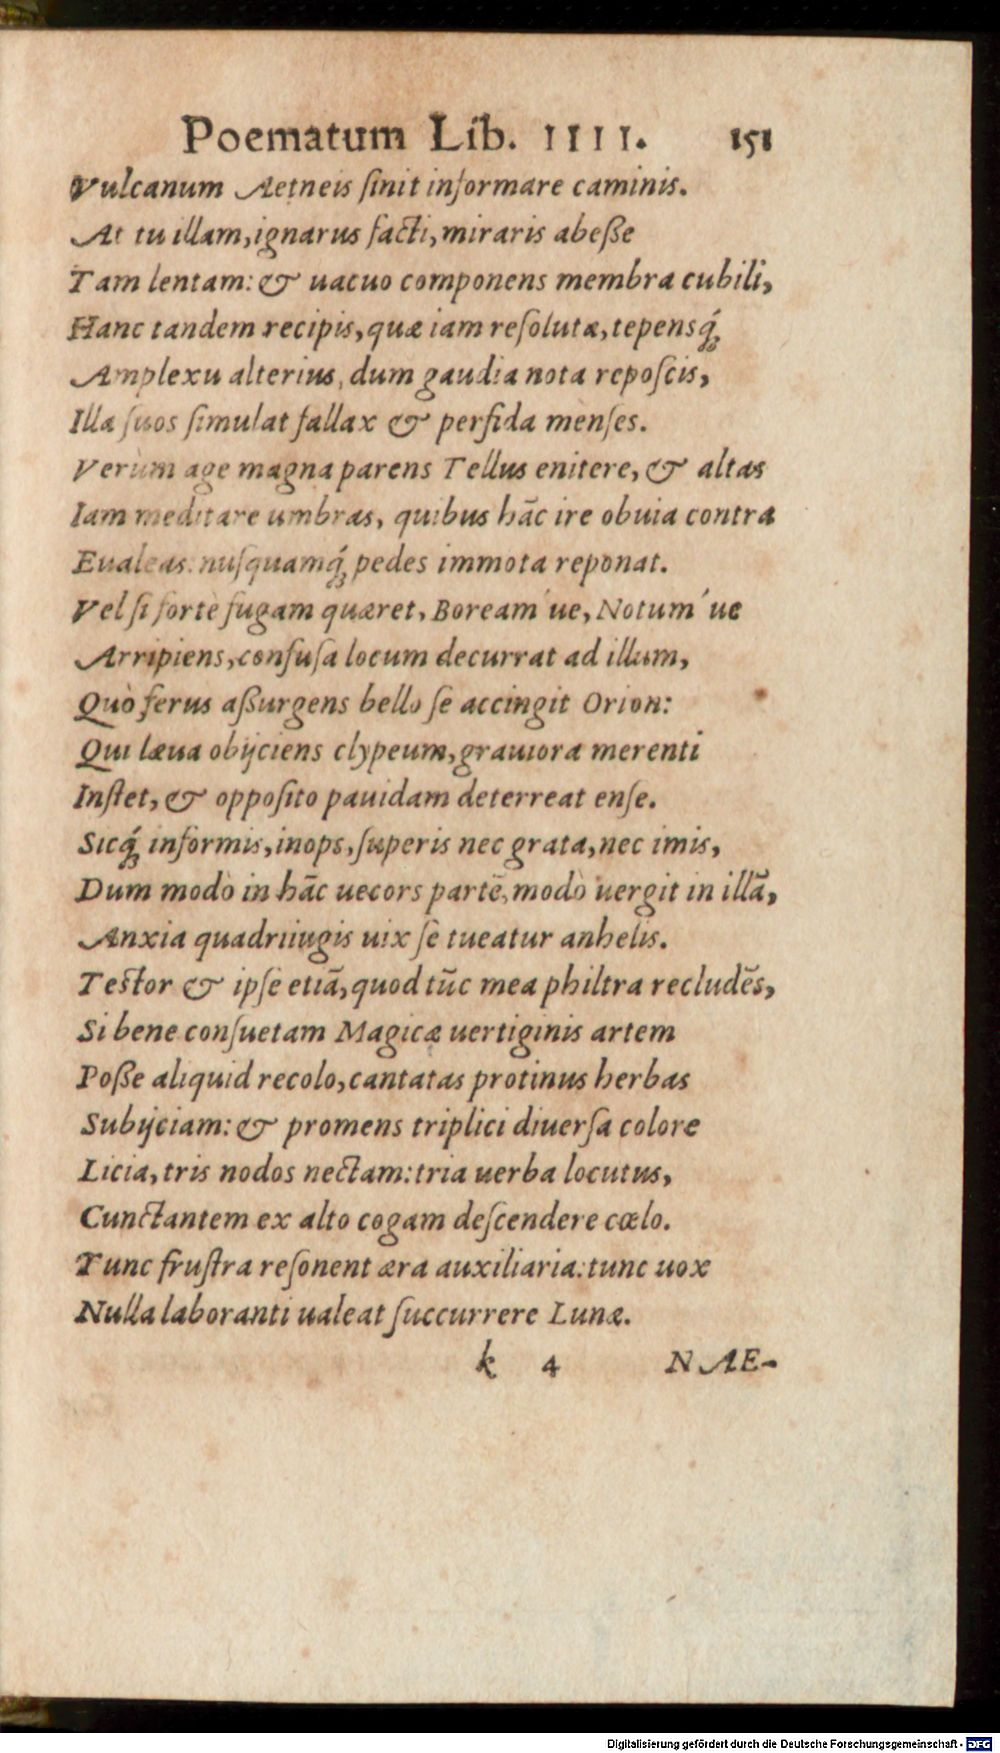 Poematum Lib. IIII. 151
Vulcanum Aetneis ſinit informare caminis.
At tu illam, ignarus facti, miraris abeſſe
Tam lentam: & uacuo componens membra cubili,
Hanc tandem recipis, quæ iam reſoluta, tepensq́;
Amplexu alterius, dum gaudia nota repoſcis,
Illa ſuos ſimulat fallax & perfida menſes.
Verùm age magna parens Tellus enitere, & altas
Iam meditare umbras, quibus hāc ire obuia contra
Eualeas: nuſquamq́; pedes immota reponat.
Vel ſi fortè fugam quæret, Boream'ue, Notum'ue
Arripiens, confuſa locum decurrat ad illum,
Quò ferus aſſurgens bello ſe accingit Orion:
Qui læua obijciens clypeum, grauiora merenti
Inſtet, & oppoſito pauidam deterreat enſe.
Sicq́; informis, inops, ſuperis nec grata, nec imis,
Dum modò in hāc uecors partē, modò uergit in illā,
Anxia quadriiugis uix ſe tueatur anhelis.
Teſtor & ipſe etiā, quod tūc mea philtra recludēs,
Si bene conſuetam Magicæ uertiginis artem
Poſſe aliquid recolo, cantatas protinus herbas
Subijciam: & promens triplici diuerſa colore
Licia, tris nodos nectam: tria uerba locutus,
Cunctantem ex alto cogam deſcendere cœlo.
Tunc fruſtra reſonent æra auxiliaria: tunc uox
Nulla laboranti ualeat ſuccurrere Lunæ.
k 4 NAE-
Digitalisierung gefördert durch die Deutsche Forschungsgemeinschaft - DFG